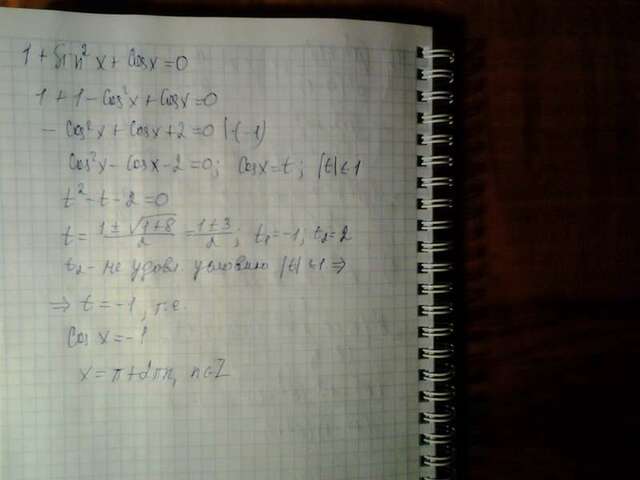 1 + sin²x + cosx = 0
1 + 1 - cos²x + cosx = 0
- cos²x + cosx + 2 = 0 |·(-1)
cos²x - cosx - 2 = 0; cosx = t; |t| ≤ 1
t² - t - 2 = 0
t = (1 ± √(1+8))/2 = (1±3)/2; t₁ = -1; t₂ = 2
t₂ - не удовл. условию |t| ≤ 1 ⇒
⇒ t = -1, т.е.
cos x = -1
x = π + 2πn, n∈Z